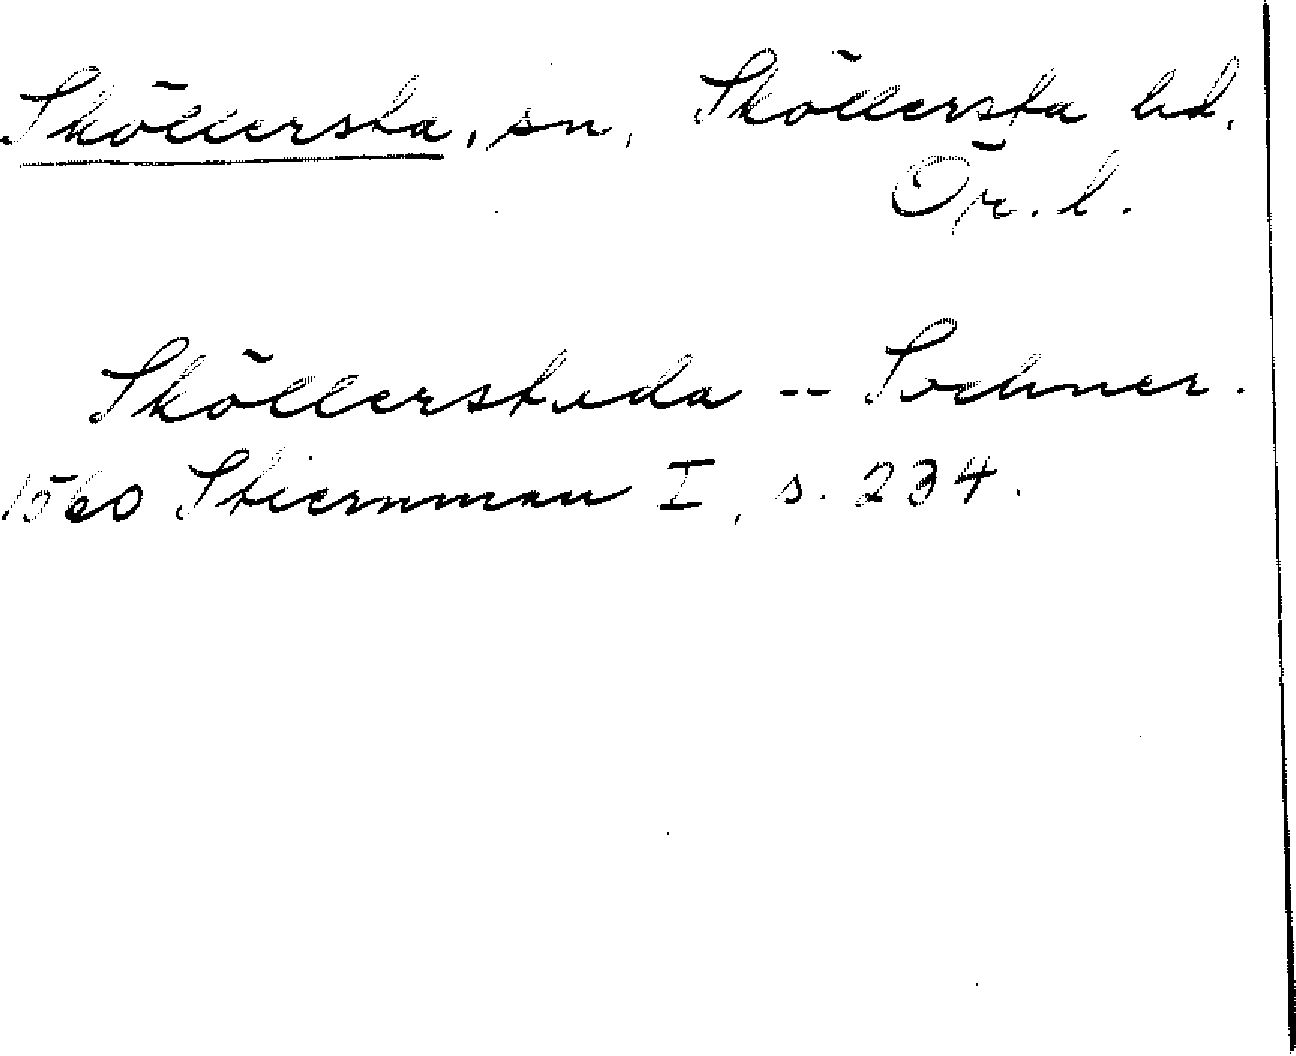 Sköllersta, sn, Sköllersta hd,
Ör. l.
Sköllersteda -- Sochner.
1560 Stiernman I, s. 234.